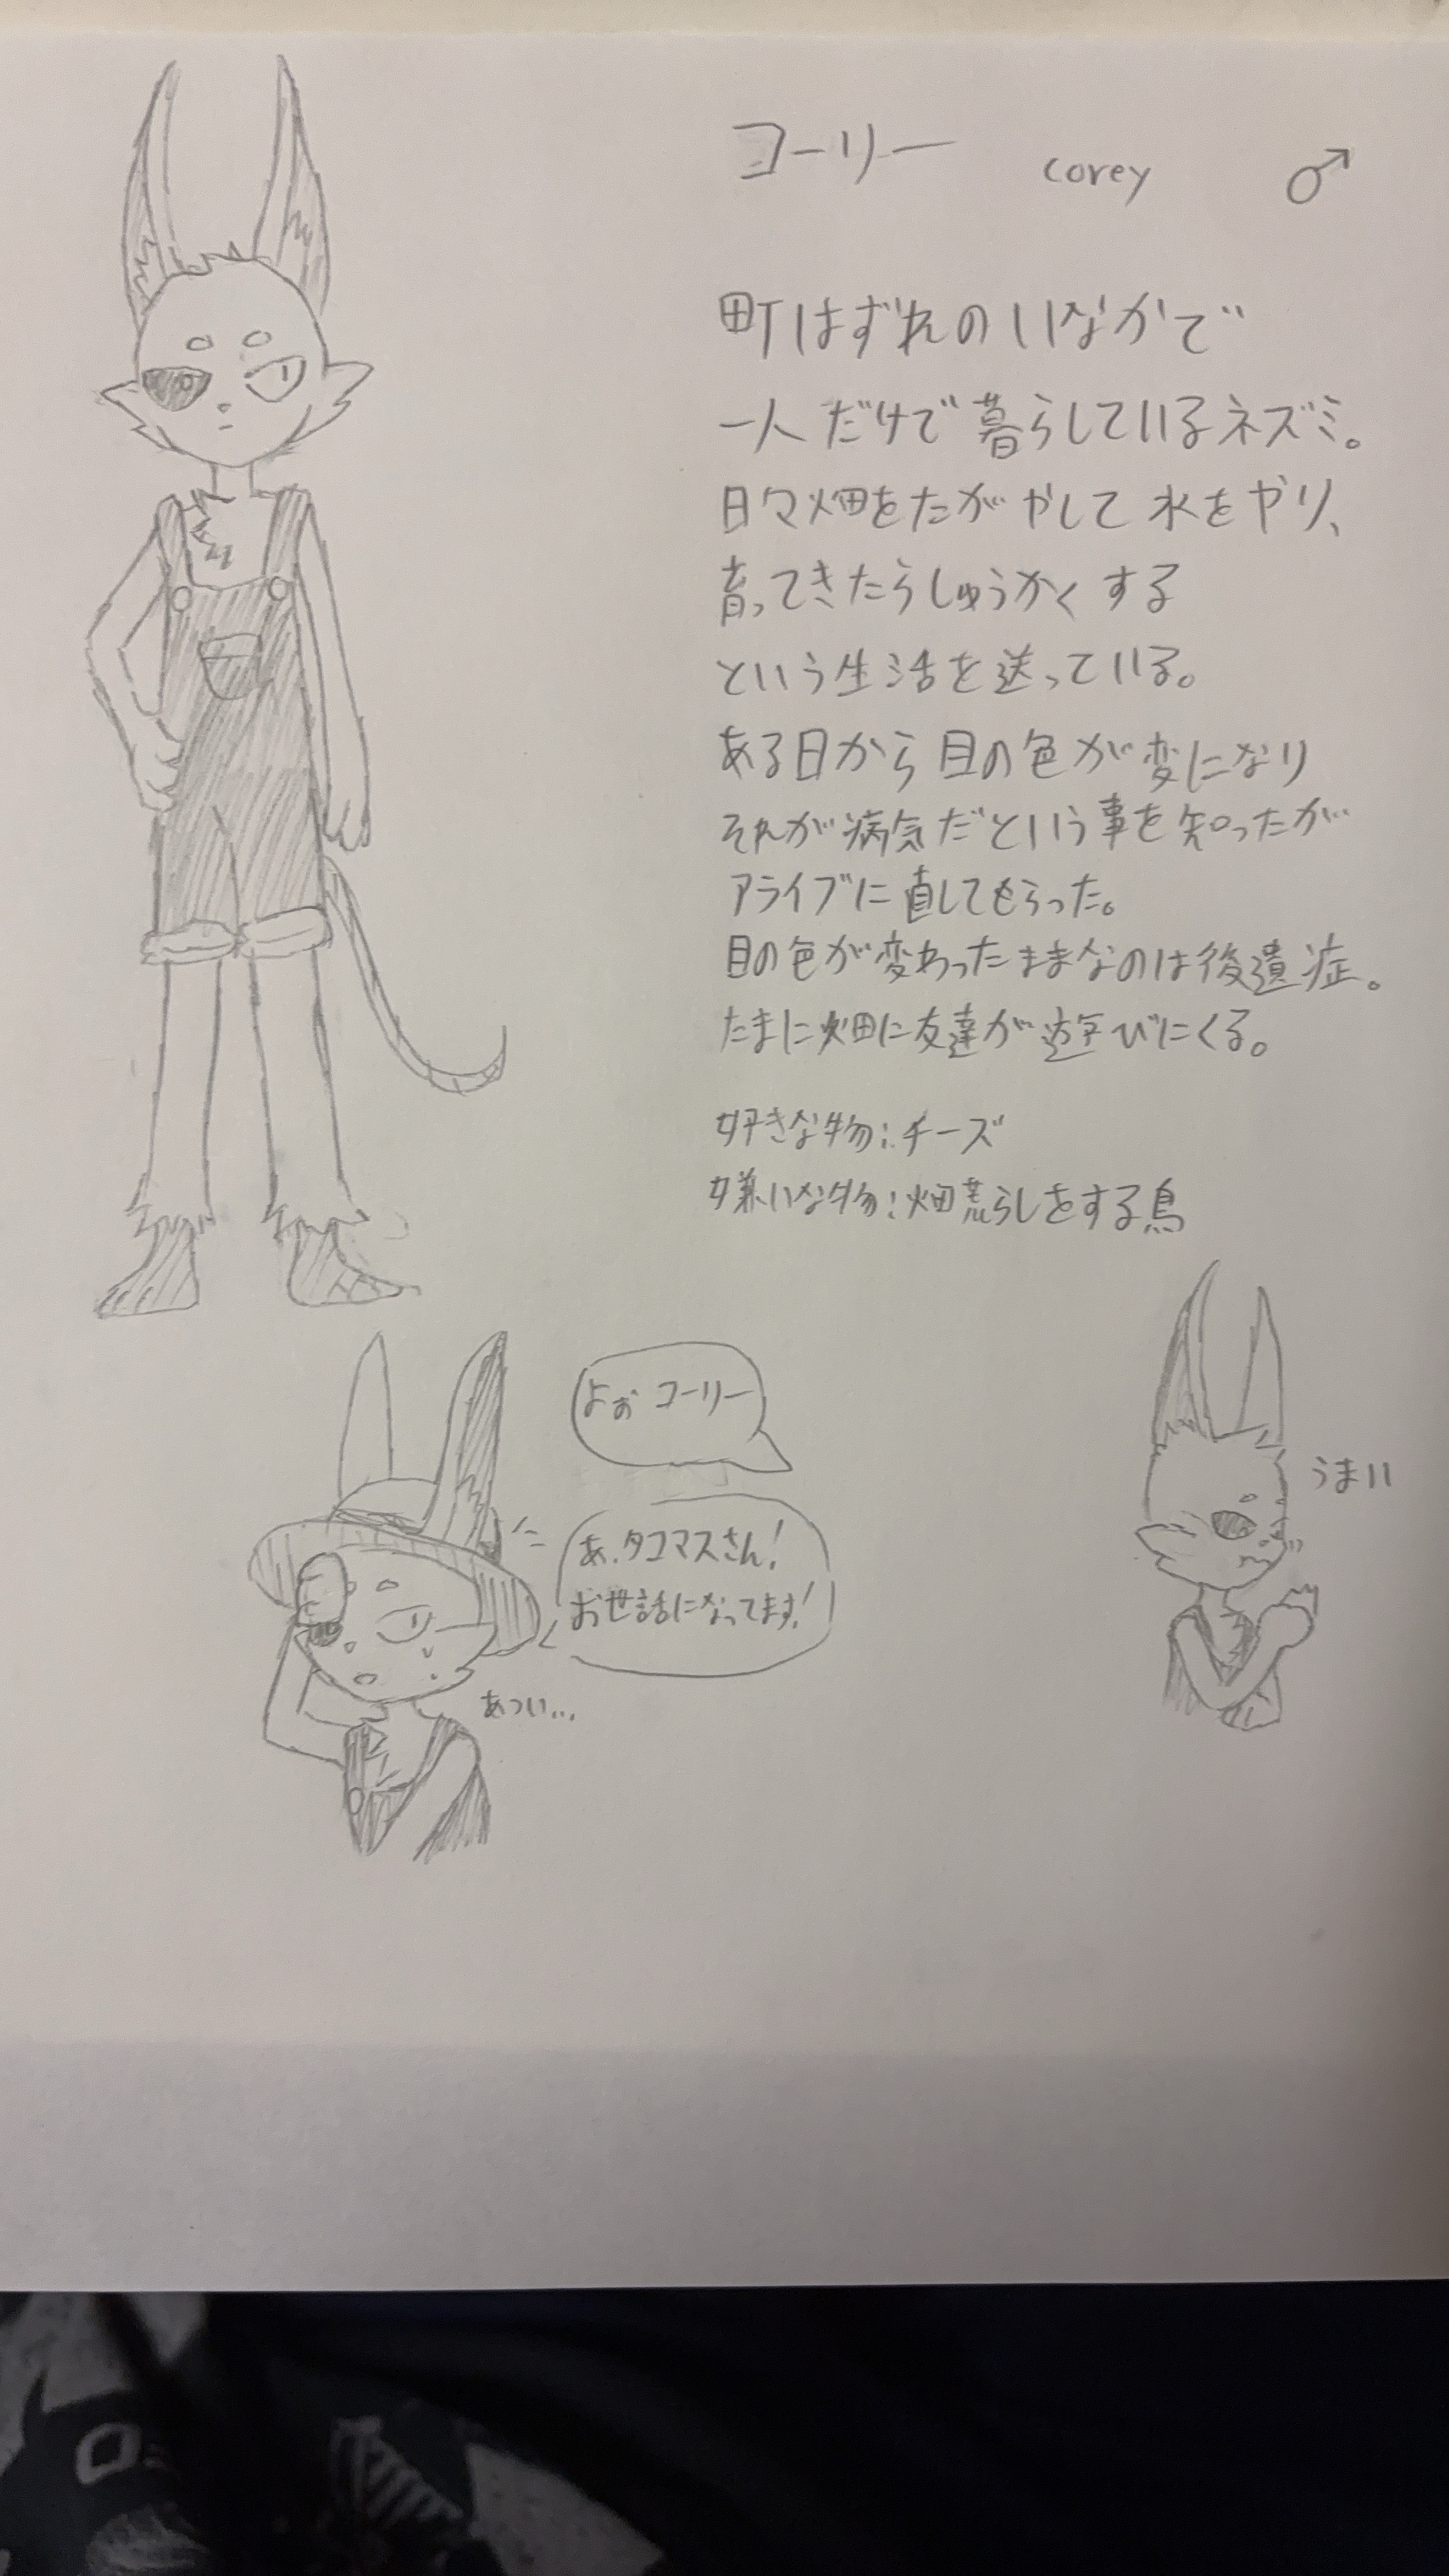 コーリー corey ♂
町はずれのいなかで
一人だけで暮らしているネズミ。
日々畑をたがやして水をやり、
育ってきたらしゅうかくする
という生活を送っている。
ある日から目の色が変になり
それが病気だという事を知ったが
アライブに直してもらった。
目の色が変わったままなのは後遺症。
たまに畑に友達が遊びにくる。
好きな物:チーズ
嫌いな物:畑荒らしをする鳥
よぉ コーリー
あ、タコマスさん!
お世話になってます!
あつい...
うまい